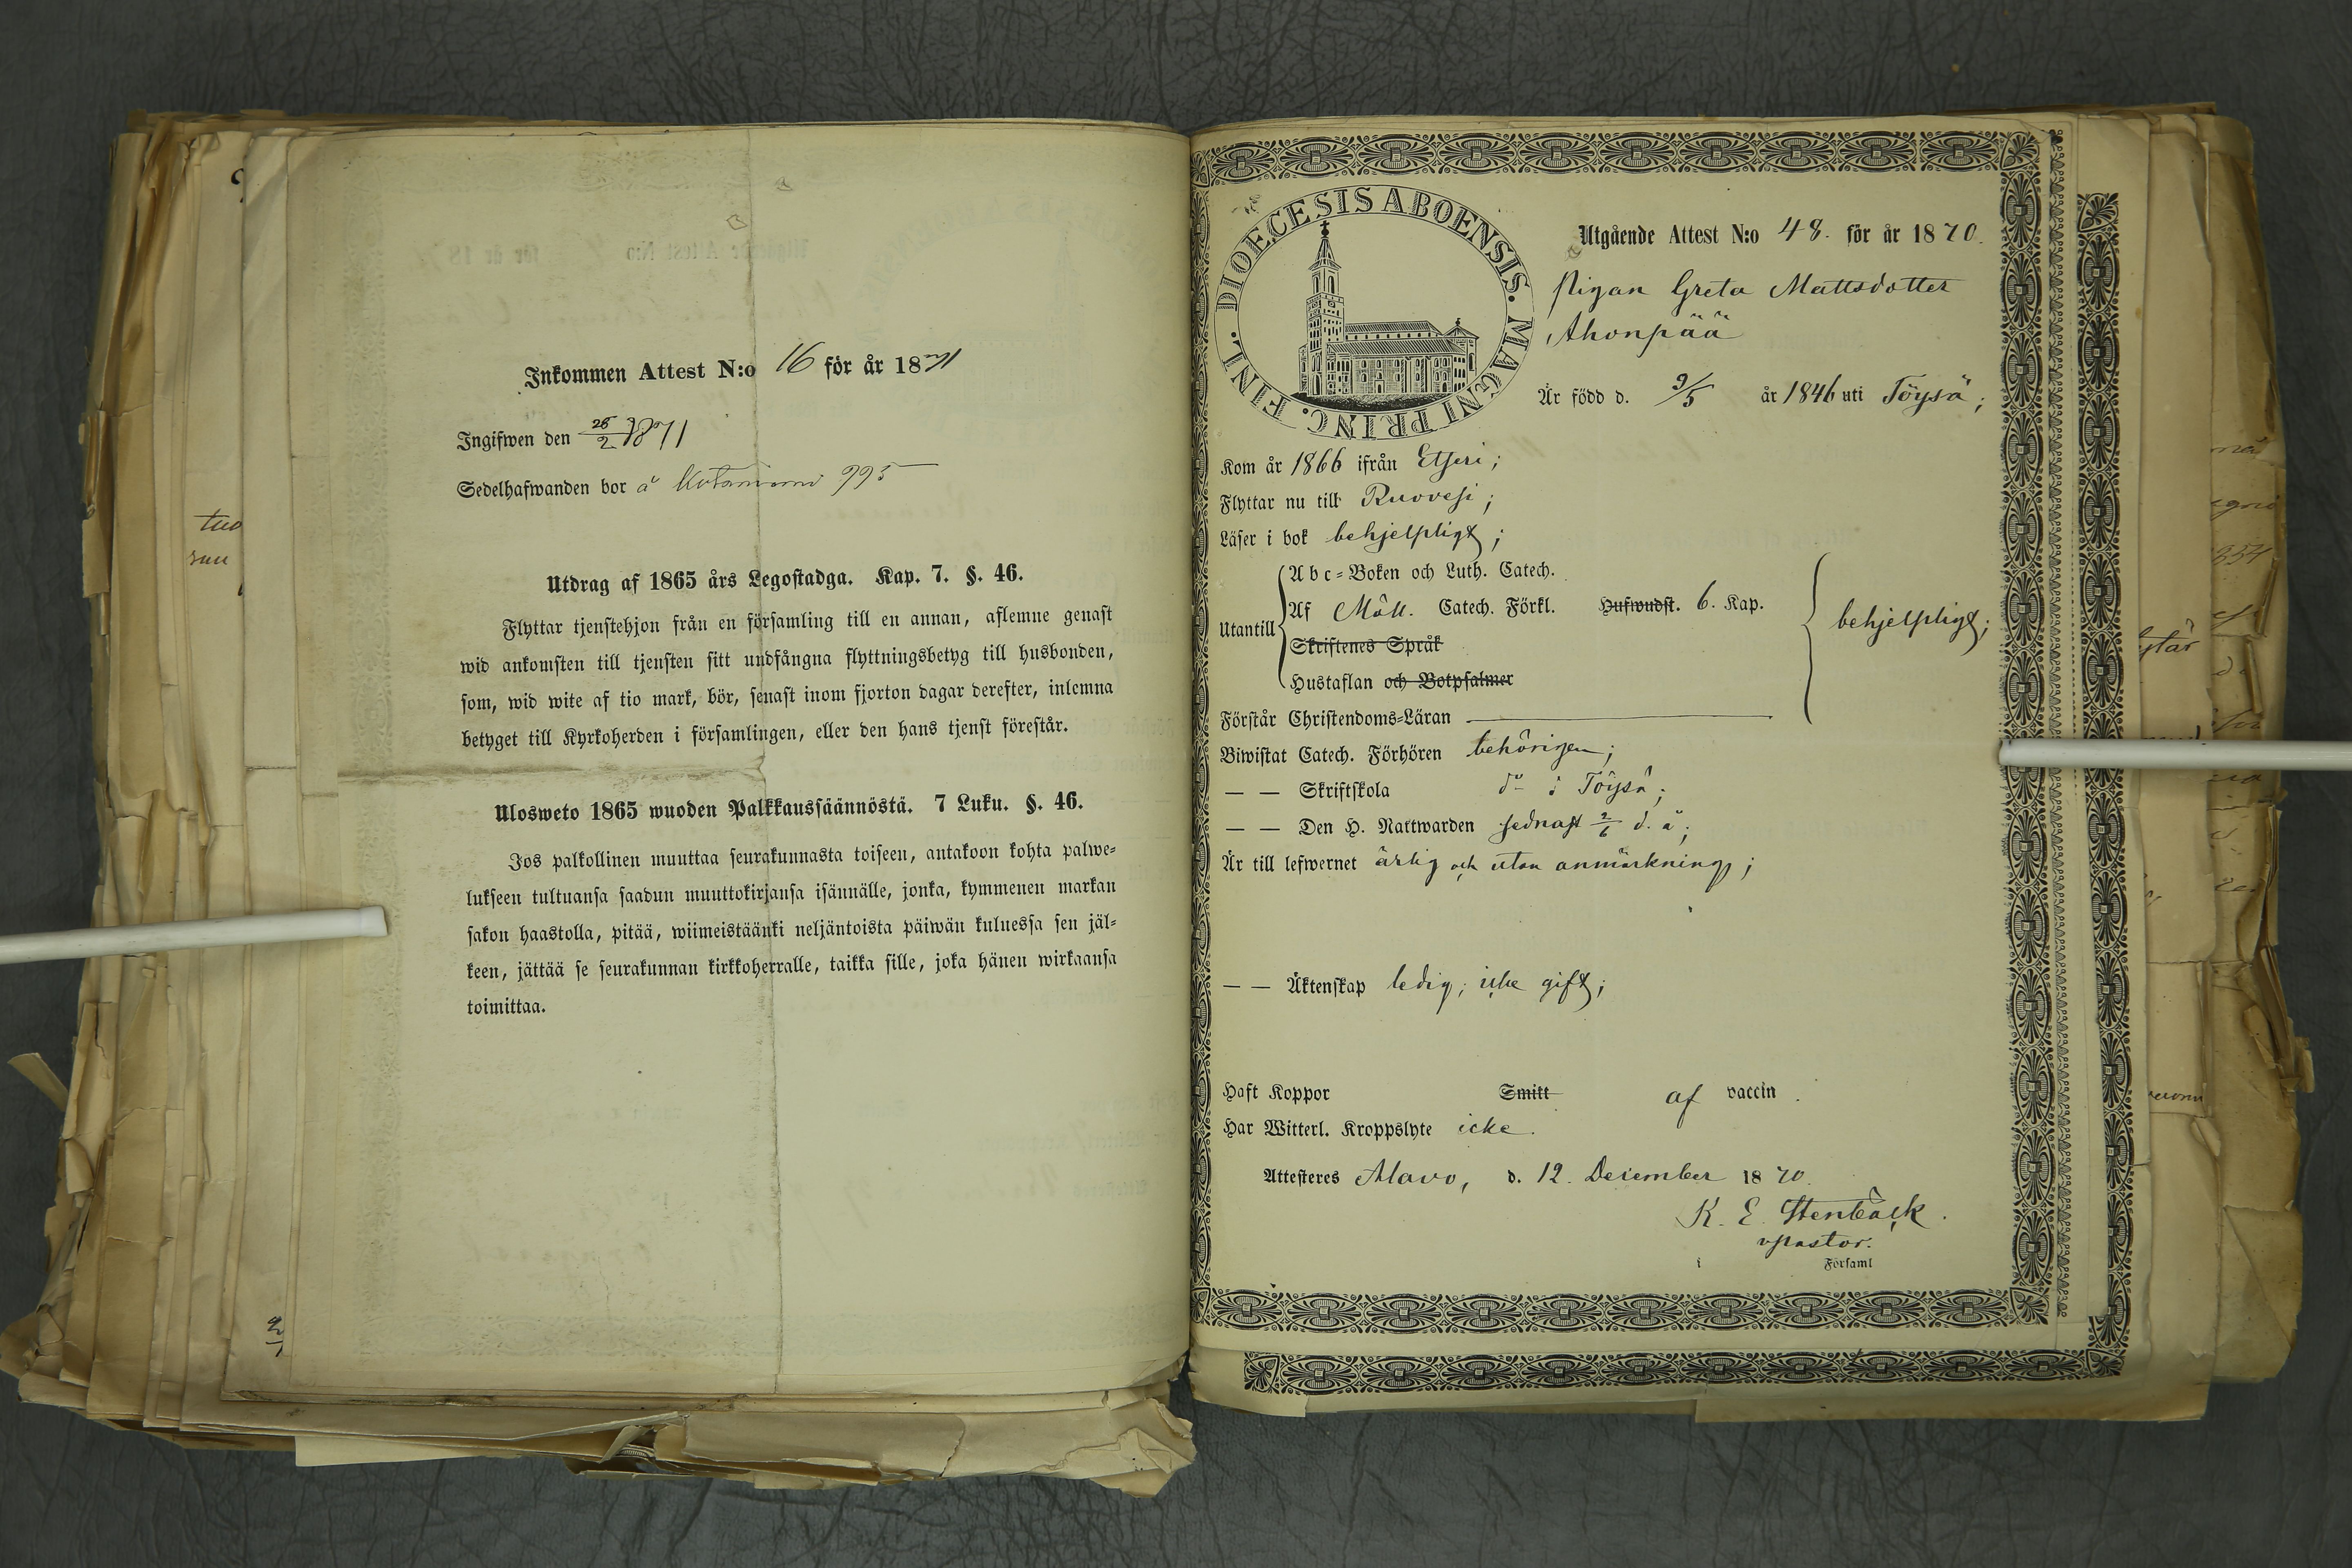 Inkommen Attest N:o 16 för år 1871
Ingifwen den 28/2 1871
Sedelhafwanden bor å 995
Utdrag af 1865 års Legostadga. Kap. 7. §. 46.
Flyttar tjenstehjon från en församling till en annan, aflemne genast
wid ankomsten till tjensten sitt undfångna flyttningsbetyg till husbonden,
som, wid wite af tio mark, bör, senast inom fjorton dagar derefter, inlemna
betyget till Kyrkoherden i församlingen, eller den hans tjenst förestår.
Ulosweto 1865 wuoden Palkkaussäännöstä. 7 Luku. §. 46.
Jos palkollinen muuttaa seurakunnasta toiseen, antakoon kohta palwe-
lukseen tultuansa saadun muuttokirjansa isännälle, jonka, kymmenen markan
sakon haastolla, pitää, wiimeistäänki neljäntoista päiwän kuluessa sen jäl-
keen, jättää se seurakunnan kirkkoherralle, taikka sille, joka hänen wirkaansa
toimittaa.
DIOECESIS ABOENSIS. MAGNI PRINC. FINL.
Utgående Attest N:o 48. för år 1870.
Pigan Greta Mattsdotter
Ahonpää
Är född d. 9/5 år 1846 uti Töysä;
Kom år 1866 ifrån Etseri;
Flyttar nu till Ruovesi;
Läser i bok behjelpligt;
Utantill
Abc-Boken och Luth. Catech.
Af Möll. Catech. Förkl. Hufwudst. 6. Kap.
Skriftenes Språk
Hustaflan och Botpsalmer
behjelpligt;
Förstår Christendoms-Läran
Biwistat Catech. Förhören behörigen;
— — Skriftskola do i Töysä;
— — Den H. Nattwarden sednast 2/6 d. å;
Är till lefwernet ärlig och utan anmärkning;
— — Äktenskap ledig; icke gift;
Haft Koppor Smitt af vaccin.
Har Witterl. Kroppslyte icke.
Attesteres Alavo, d. 12. December 1870.
K. E. Stenbäck.
vpastor.
i Församl